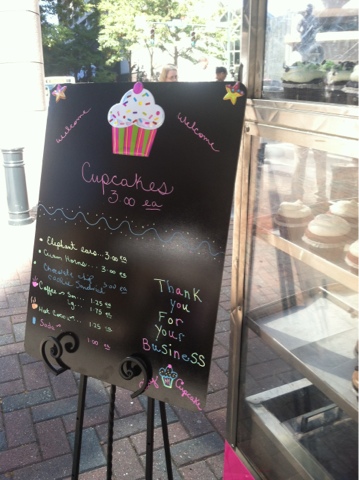 Welcome
Welcome
Cupcakes
3.00 ea
• Elephant ears... 3.00 ea
• Cream Horns... 3.00 ea
Chocolate chip
cookie Sandwich
Coffee - Sm... 1.25
Lg... 1.75
Hot 1.25
Soda 1.00
Thank
you
For
Your
Business
Cupcake